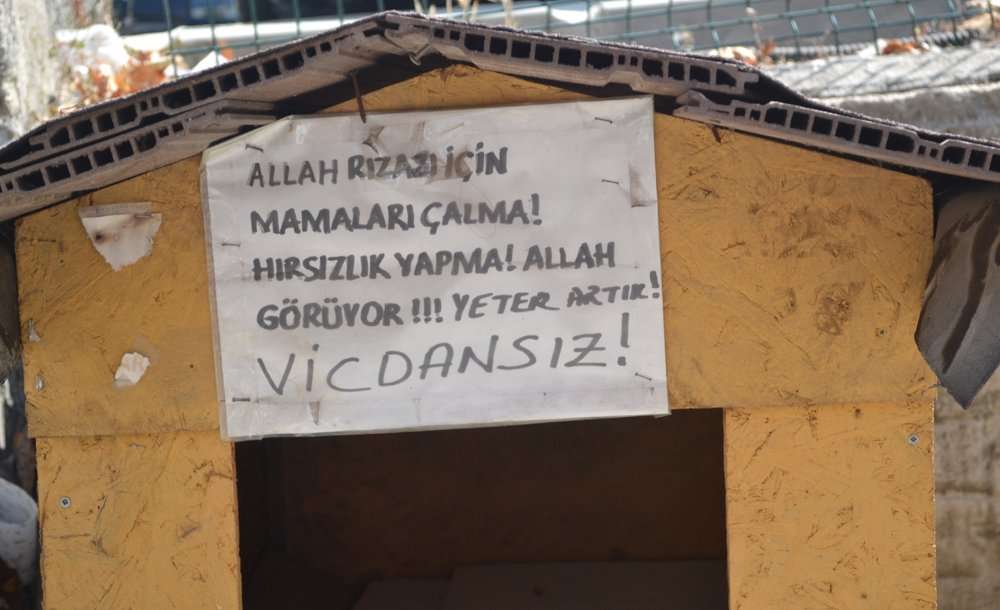 ALLAH RIZAZI İÇİN
MAMALARI ÇALMA!
HIRSIZLIK YAPMA! ALLAH
GÖRÜYOR !!! YETER ARTIK!
VİCDANSIZ!